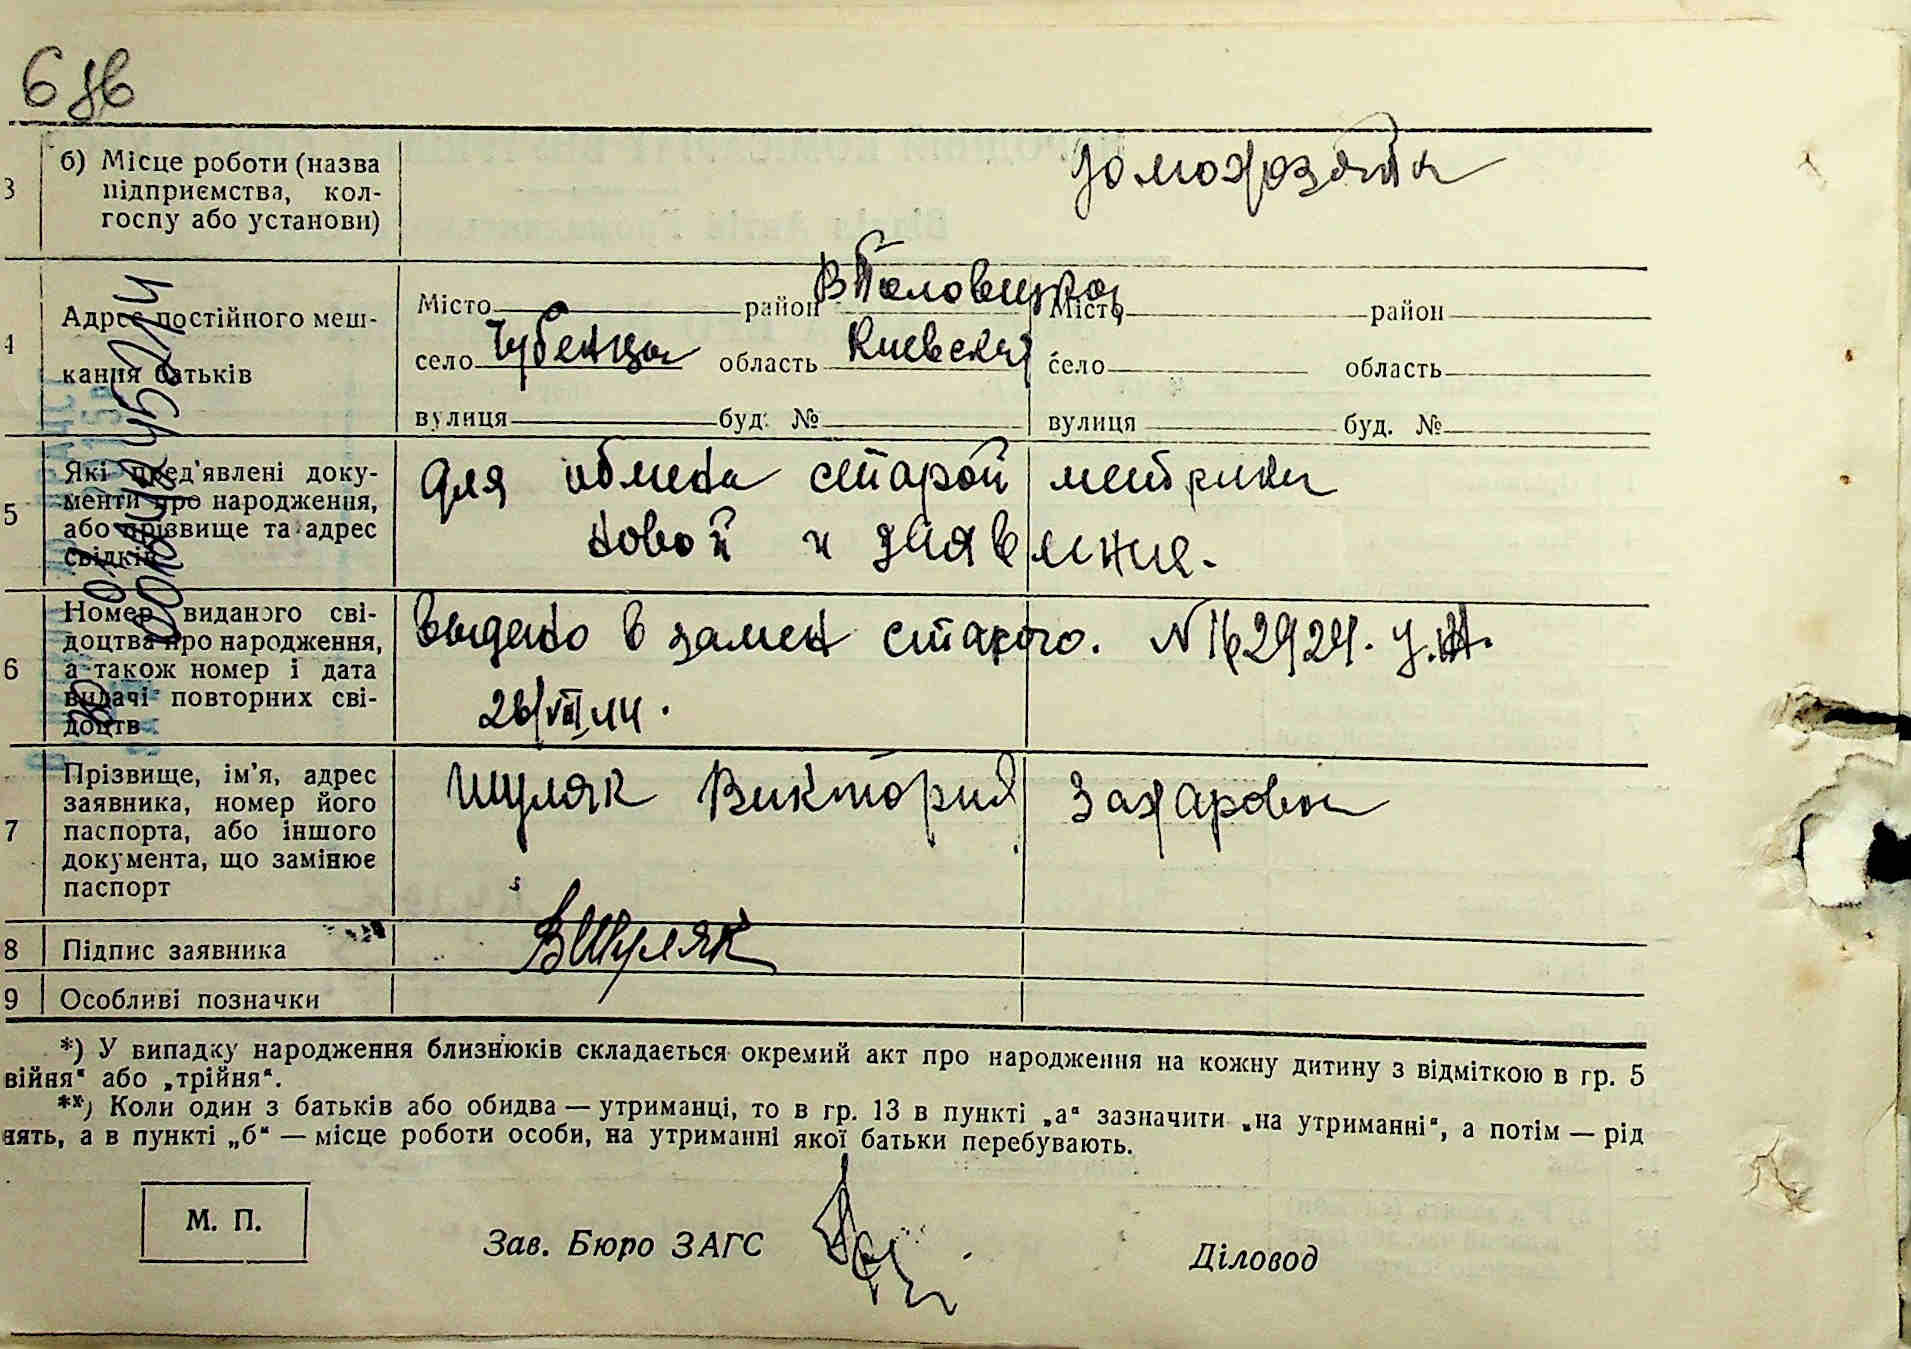 6 зв
3 б) Місце роботи (назва
підприємства, кол-
госпу або установи)
домохозяйка
4 Адрес постійного меш-
кання батьків
Місто район В Половецкого
село Чубенцы область Киевская
вулиця буд. №
Місто район
село область
вулиця буд. №
5 Які пред'явлені доку-
менти про народження,
або прізвище та адрес
свідків
для обмена старой метрики
новой и заявление.
6 Номер виданого сві-
доцтва про народження,
а також номер і дата
видачі повторних сві-
доцтв
выдано в замен старого. N
7 Прізвище, ім'я, адрес
заявника, номер його
паспорта, або іншого
документа, що замінює
паспорт
Шуляк Виктория Захаровна
8 Підпис заявника
ВШуляк
9 Особливі позначки
*) У випадку народження близнюків складається окремий акт про народження на кожну дитину з відміткою в гр. 5
війня" або „трійня".
**) Коли один з батьків або обидва — утриманці, то в гр. 13 в пункті „а" зазначити „на утриманні", а потім — рід
нять, а в пункті „б" — місце роботи особи, на утриманні якої батьки перебувають.
М. П.
Зав. Бюро ЗАГС
Діловод